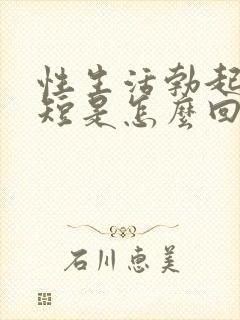 性生活勃起
短是怎麼回
石川惠美